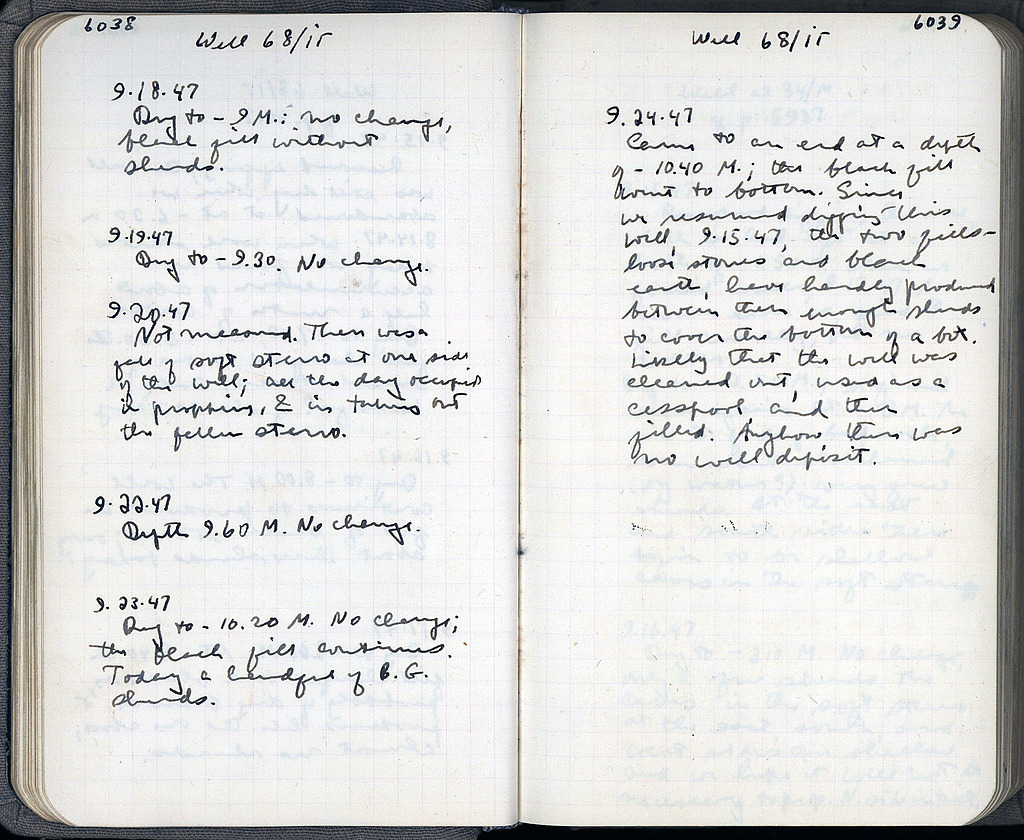 6038
Well 68/ΙΓ
9.18.47
Dug to - 9 M.: no change,
black fill without
sherds.
9.19.47
Dug to - 9.30. No change.
9.20.47
Not measured. There was a
fall of soft stereo at one side
of the well; all the day occupied
in propping, & in taking out
the fallen stereo.
9.22.47
Depth 9.60 M. No change.
9.23.47
Dug to - 10.20 M. No change;
the black fill continues.
Today a handful of B.G.
sherds.
6039
Well 68/ΙΓ
9.24.47
Came to an end at a depth
of - 10.40 M.; the black fill
went to bottom. Since
we resumed digging this
well, 9.15.47, the two fills -
loose stones and black
earth, have hardly produced
between them enough sherds
to cover the bottom of a box.
Likely that the well was
cleaned out, used as a
cesspool, and then
filled. Anyhow there was
no well deposit.